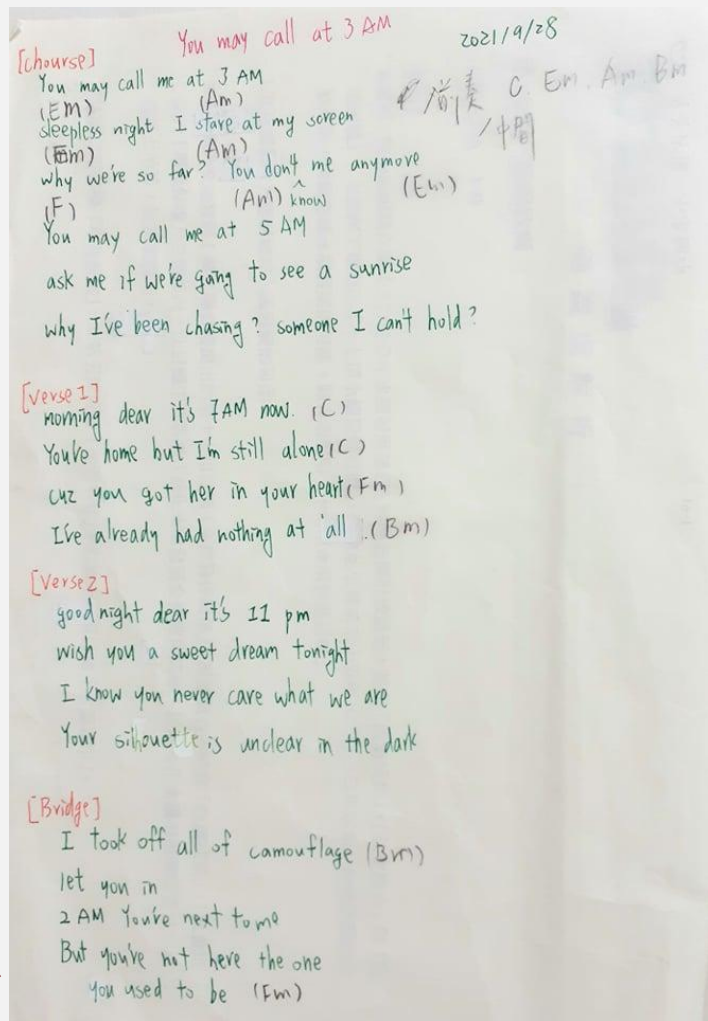 You may call at 3 AM
2021/9/28
[chourse]
You may call me at 3 AM
(Em) (Am)
sleepless night I stare at my screen
(Em) (Am)
why we're so far? You don't know me anymore
(F) (Am) (Em)
You may call me at 5 AM
ask me if we're gang to see a sunrise
why I've been chasing? someone I can't hold?
前奏 C. Em. Am. Bm
/中間
[Verse 1]
morning dear it's 7AM now. (C)
You're home but I'm still alone (C)
cuz you got her in your heart (Fm)
I've already had nothing at all. (Bm)
[Verse 2]
good night dear it's 11 pm
wish you a sweet dream tonight
I know you never care what we are
Your silhouette is unclear in the dark
[Bridge]
I took off all of camouflage (Bm)
let you in
2 AM You're next to me
But you're not here the one
you used to be (Fm)